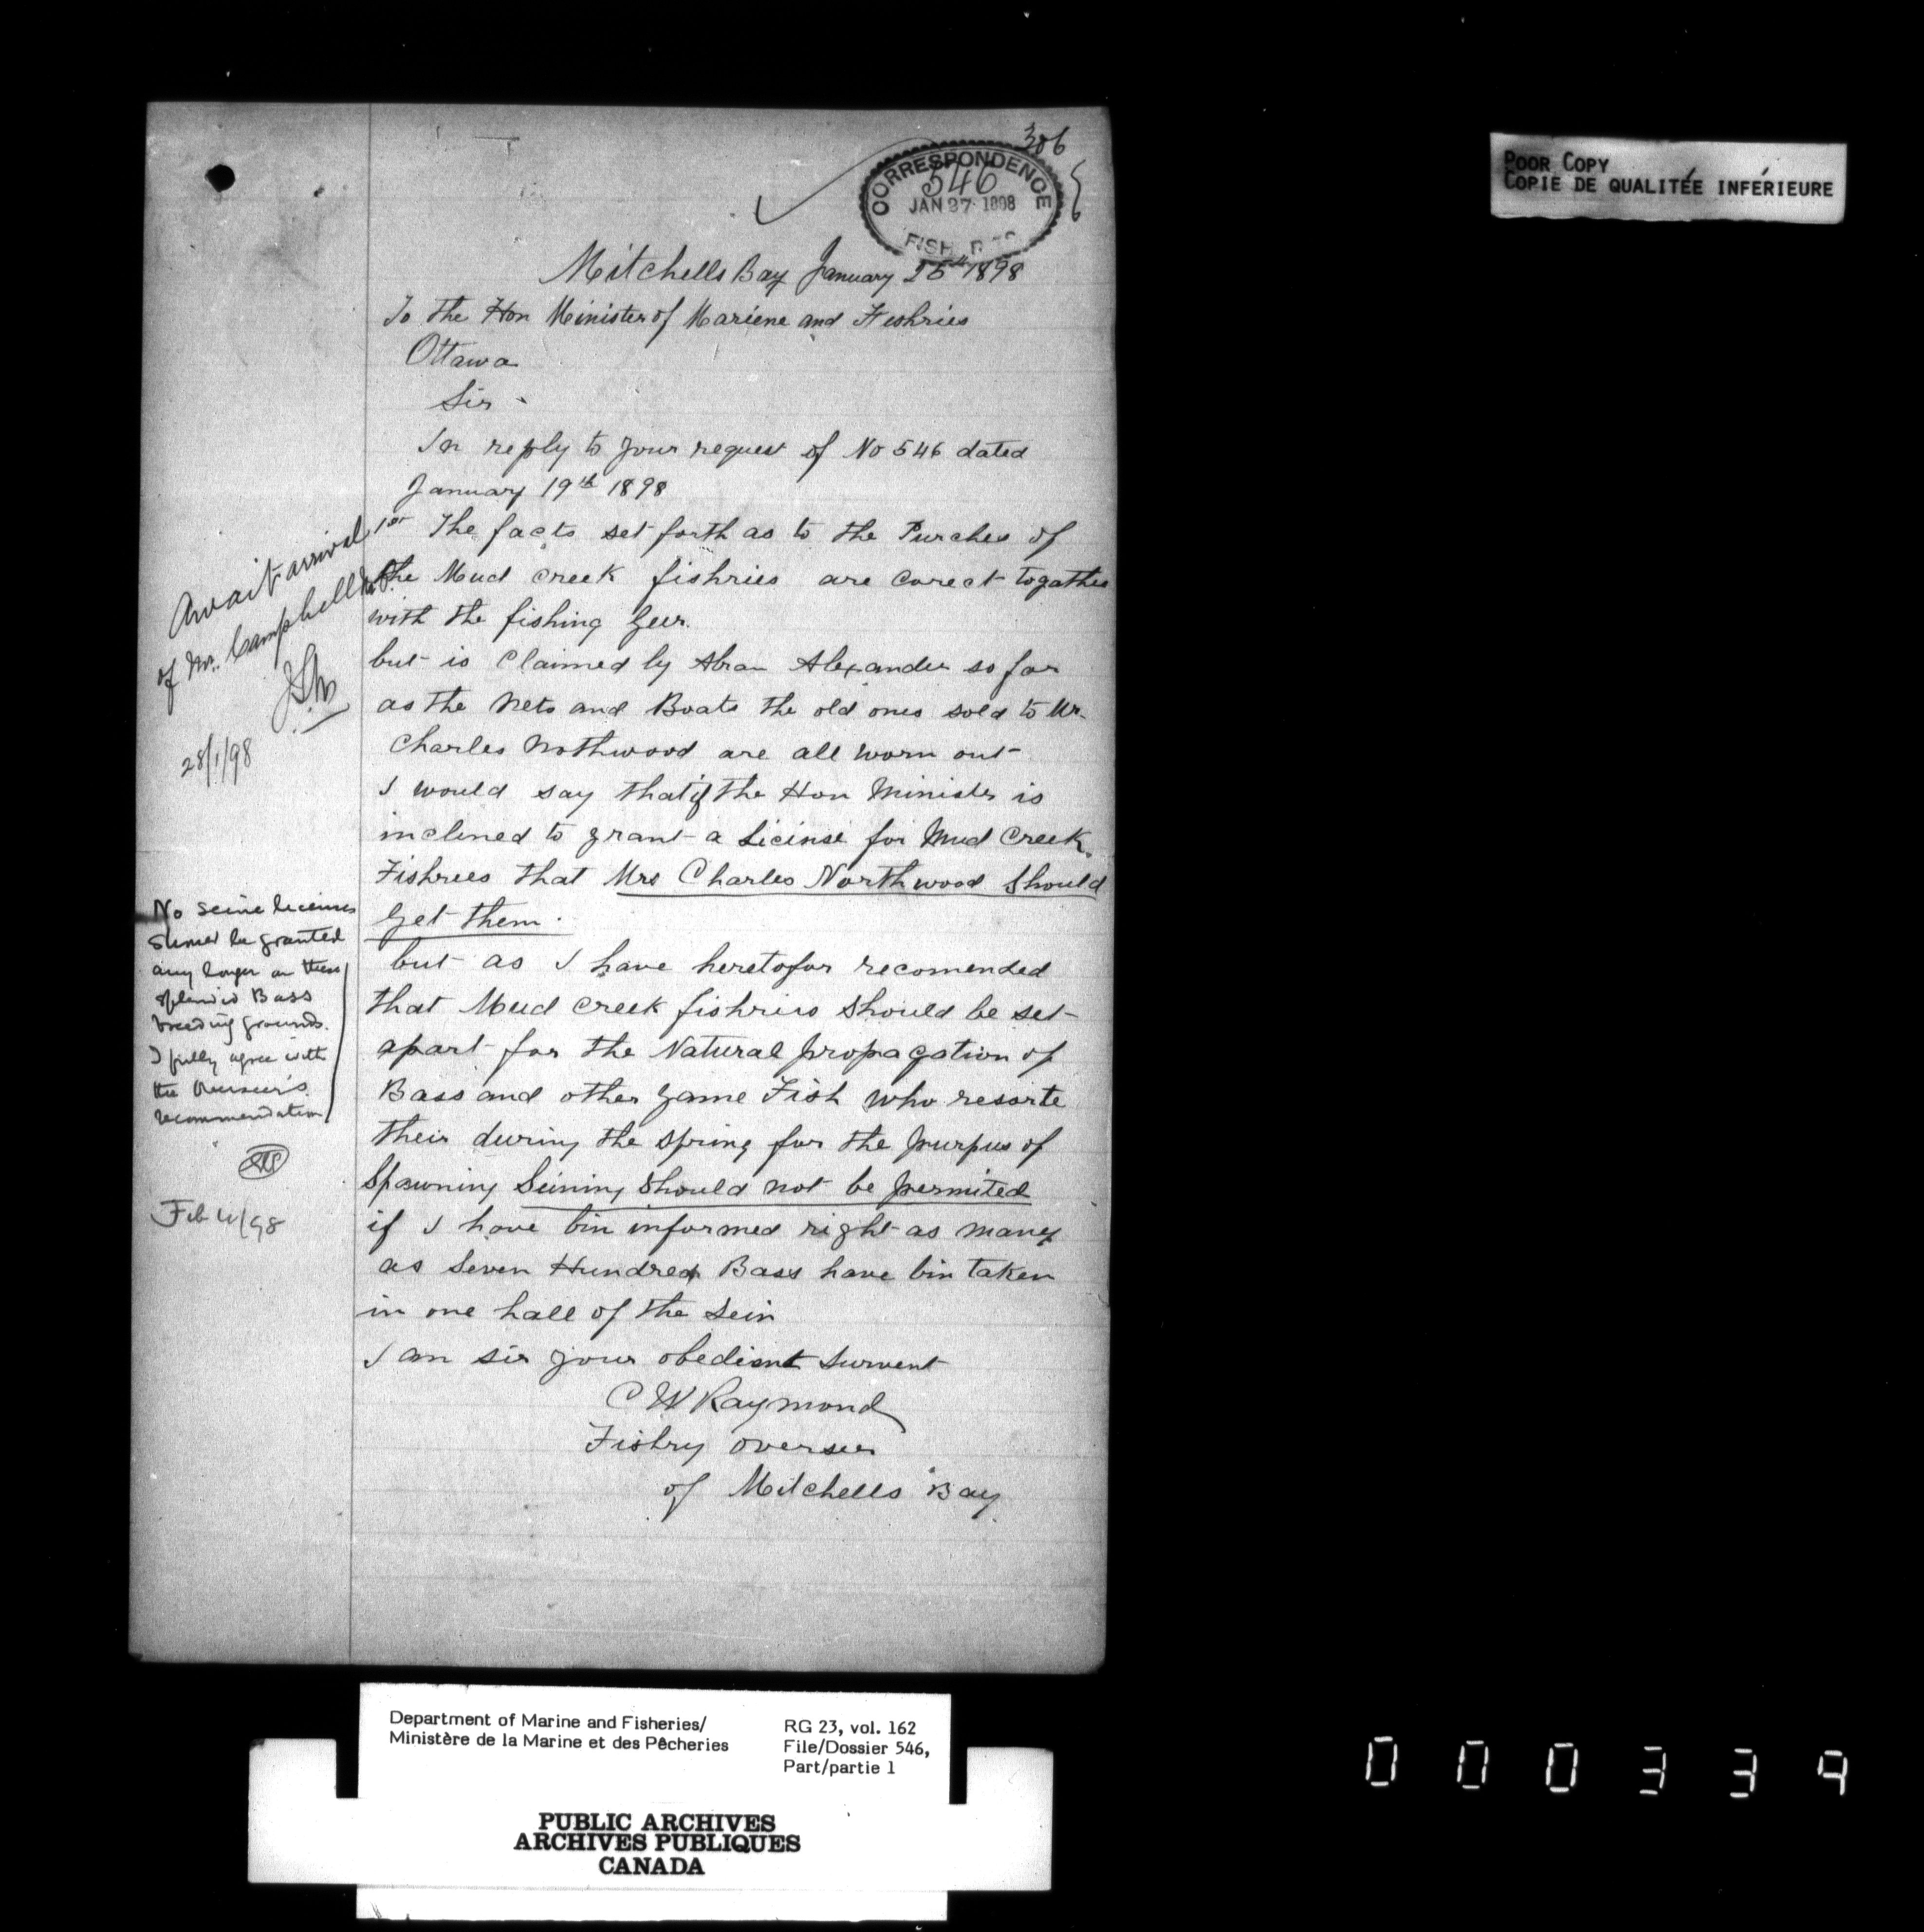 306
CORRESPONDENCE
546
JAN 27 1898
FISH
Mitchells Bay January 25th 1898
To the Hon Minister of Mariene and Fishries
Ottawa
Sir
In reply to your request of No 546 dated
January 19th 1898
1st The facts set forth as to the Purches of
the Mud Creek fishries are Corect togather
with the fishing Geer.
but is Claimed by Abram Alexander so far
as the Nets and Boats the old ones sold to Mr.
Charles Nothwood are all worn out
I would say that if the Hon Minister is
inclened to grant a Licinse for Mud Creek
Fishrees that Mrs Charles Northwood Should
Get them.
but as I have heretofor recomended
that Mud Creek fishries should be set
apart for the Natural propagation of
Bass and other Game Fish who resorte
their during the spring for the purpus of
Spawning Seining Should not be permited
if I have bin informed right as many
as Seven Hundred Bass have bin taken
in one hall of the Sein
I am sir your obedient Survent
C W Raymond
Fishry overseer
of Mitchells Bay
Await arrival
of Mr. Campbell M.P.
28/1/98
No seine licenses
should be granted
any longer on these
splendid Bass
breeding grounds.
I fully agree with
the Overseer's
recommendation
Feb 4/98
POOR COPY
COPIE DE QUALITÉE INFÉRIEURE
Department of Marine and Fisheries/
Ministère de la Marine et des Pêcheries
RG 23, vol. 162
File/Dossier 546,
Part/partie 1
PUBLIC ARCHIVES
ARCHIVES PUBLIQUES
CANADA
000339